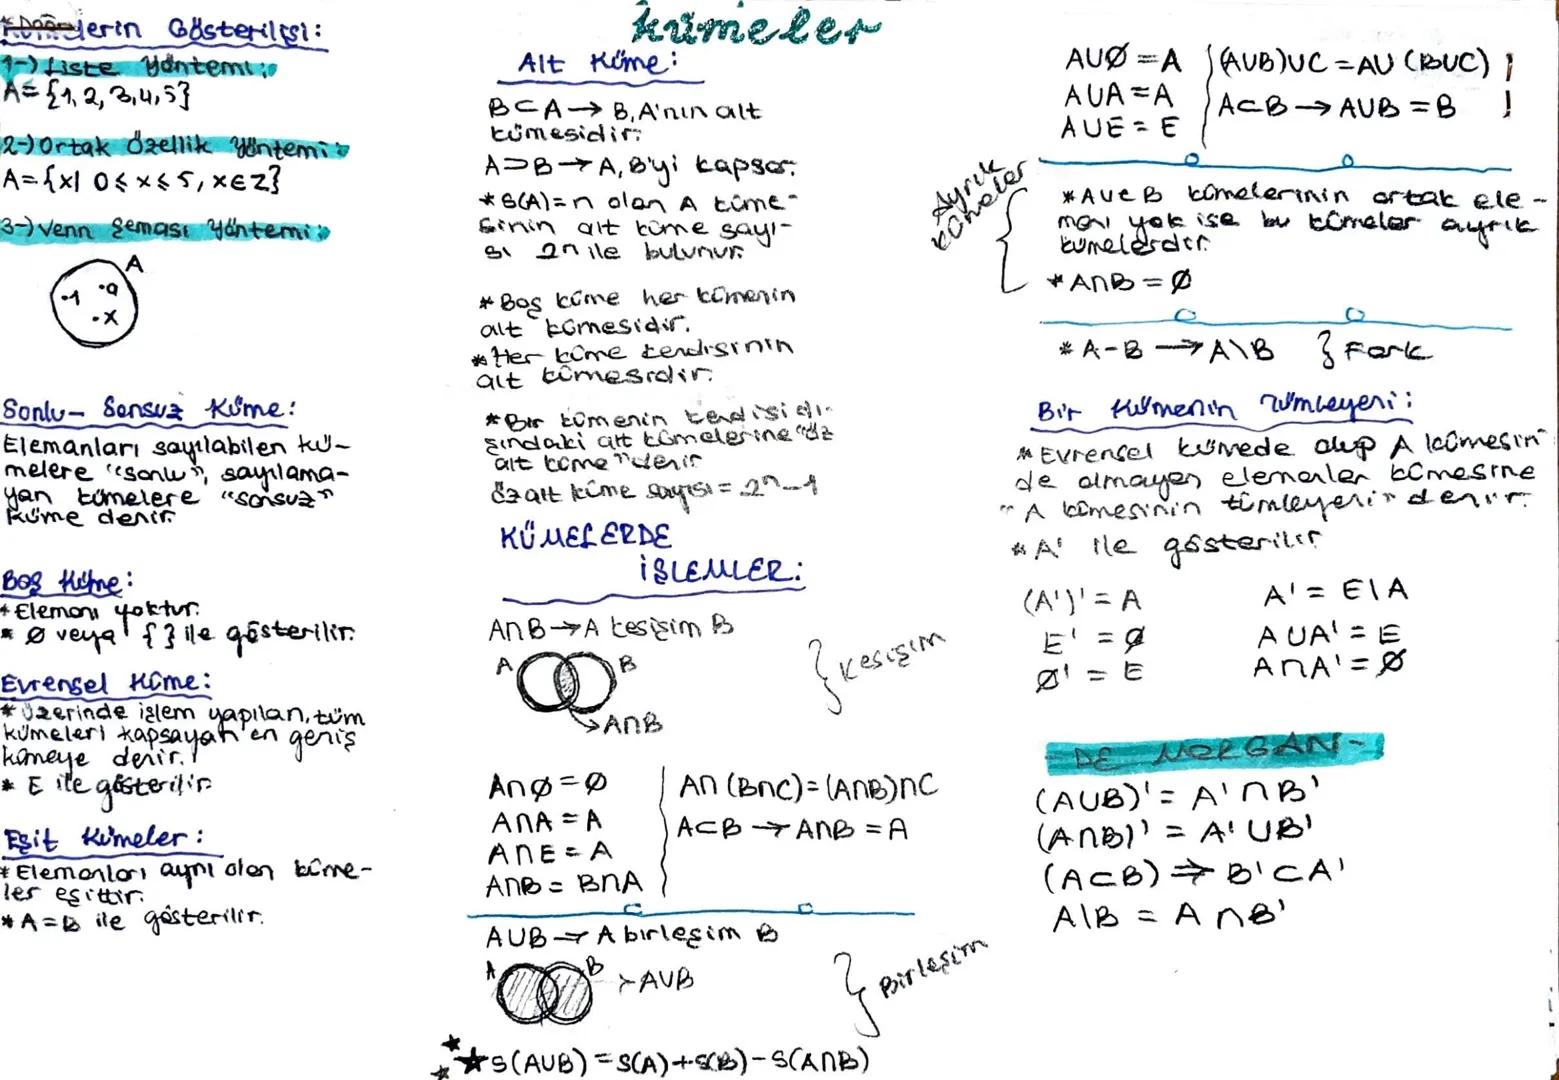 kümeler
Kümelerin Gösterilişi:
1-) Liste Yöntemi:
A={1,2,3,4,5}
2-) Ortak Özellik Yöntemi:
A={x| 0≤x≤5, x∈Z}
3-) Venn Şeması Yöntemi:
A
.1 .a
.x
Sonlu- Sonsuz Küme:
Elemanları sayılabilen kü-
melere "sonlu", sayılama-
yan kümelere "sonsuz"
küme denir.
Boş Küme:
*Elemanı yoktur.
* Ø veya { } ile gösterilir.
Evrensel Küme:
* Üzerinde işlem yapılan, tüm
kümeleri kapsayan en geniş
kümeye denir.
* E ile gösterilir.
Eşit Kümeler:
*Elemanları aynı olan küme-
ler eşittir.
*A=B ile gösterilir.
Alt Küme:
B⊂A→ B, A'nın alt
kümesidir.
A⊃B→ A, B'yi kapsar.
*s(A)=n olan A küme-
sinin alt küme sayı-
sı 2ⁿ ile bulunur.
*Boş küme her kümenin
alt kümesidir.
*Her küme kendisinin
alt kümesidir.
*Bir kümenin kendisi dı-
şındaki alt kümelerine "öz
alt küme" denir
Öz alt küme sayısı = 2ⁿ-1
KÜMELERDE
İŞLEMLER:
A∩B→A kesişim B
A B
→A∩B
} Kesişim
A∩Ø=Ø
A∩A=A
A∩E=A
A∩B=B∩A
A∩(B∩C)=(A∩B)∩C
A⊂B→A∩B=A
AUB→A birleşim B
A B >AUB
} Birleşim
★s(AUB)=s(A)+s(B)-s(A∩B)
AUØ=A
AUA=A
AUE=E
(AUB)UC=AU(BUC) !
A⊂B→AUB=B !
Ayrık
kümeler
*A ve B kümelerinin ortak ele-
manı yok ise bu kümeler ayrık
kümelerdir.
*A∩B=Ø
*A-B→A\B } Fark
Bir Kümenin Tümleyeni:
*Evrensel kümede olup A kümesin
de olmayan elemanlar kümesine
"A kümesinin tümleyeni" denir.
*A' ile gösterilir
(A')'=A
E'=Ø
Ø'=E
A'=E\A
AUA'=E
A∩A'=Ø
DE MORGAN-
(AUB)'=A'∩B'
(A∩B)'=A'UB'
(A⊂B)⇒B'⊂A'
A\B=A∩B'